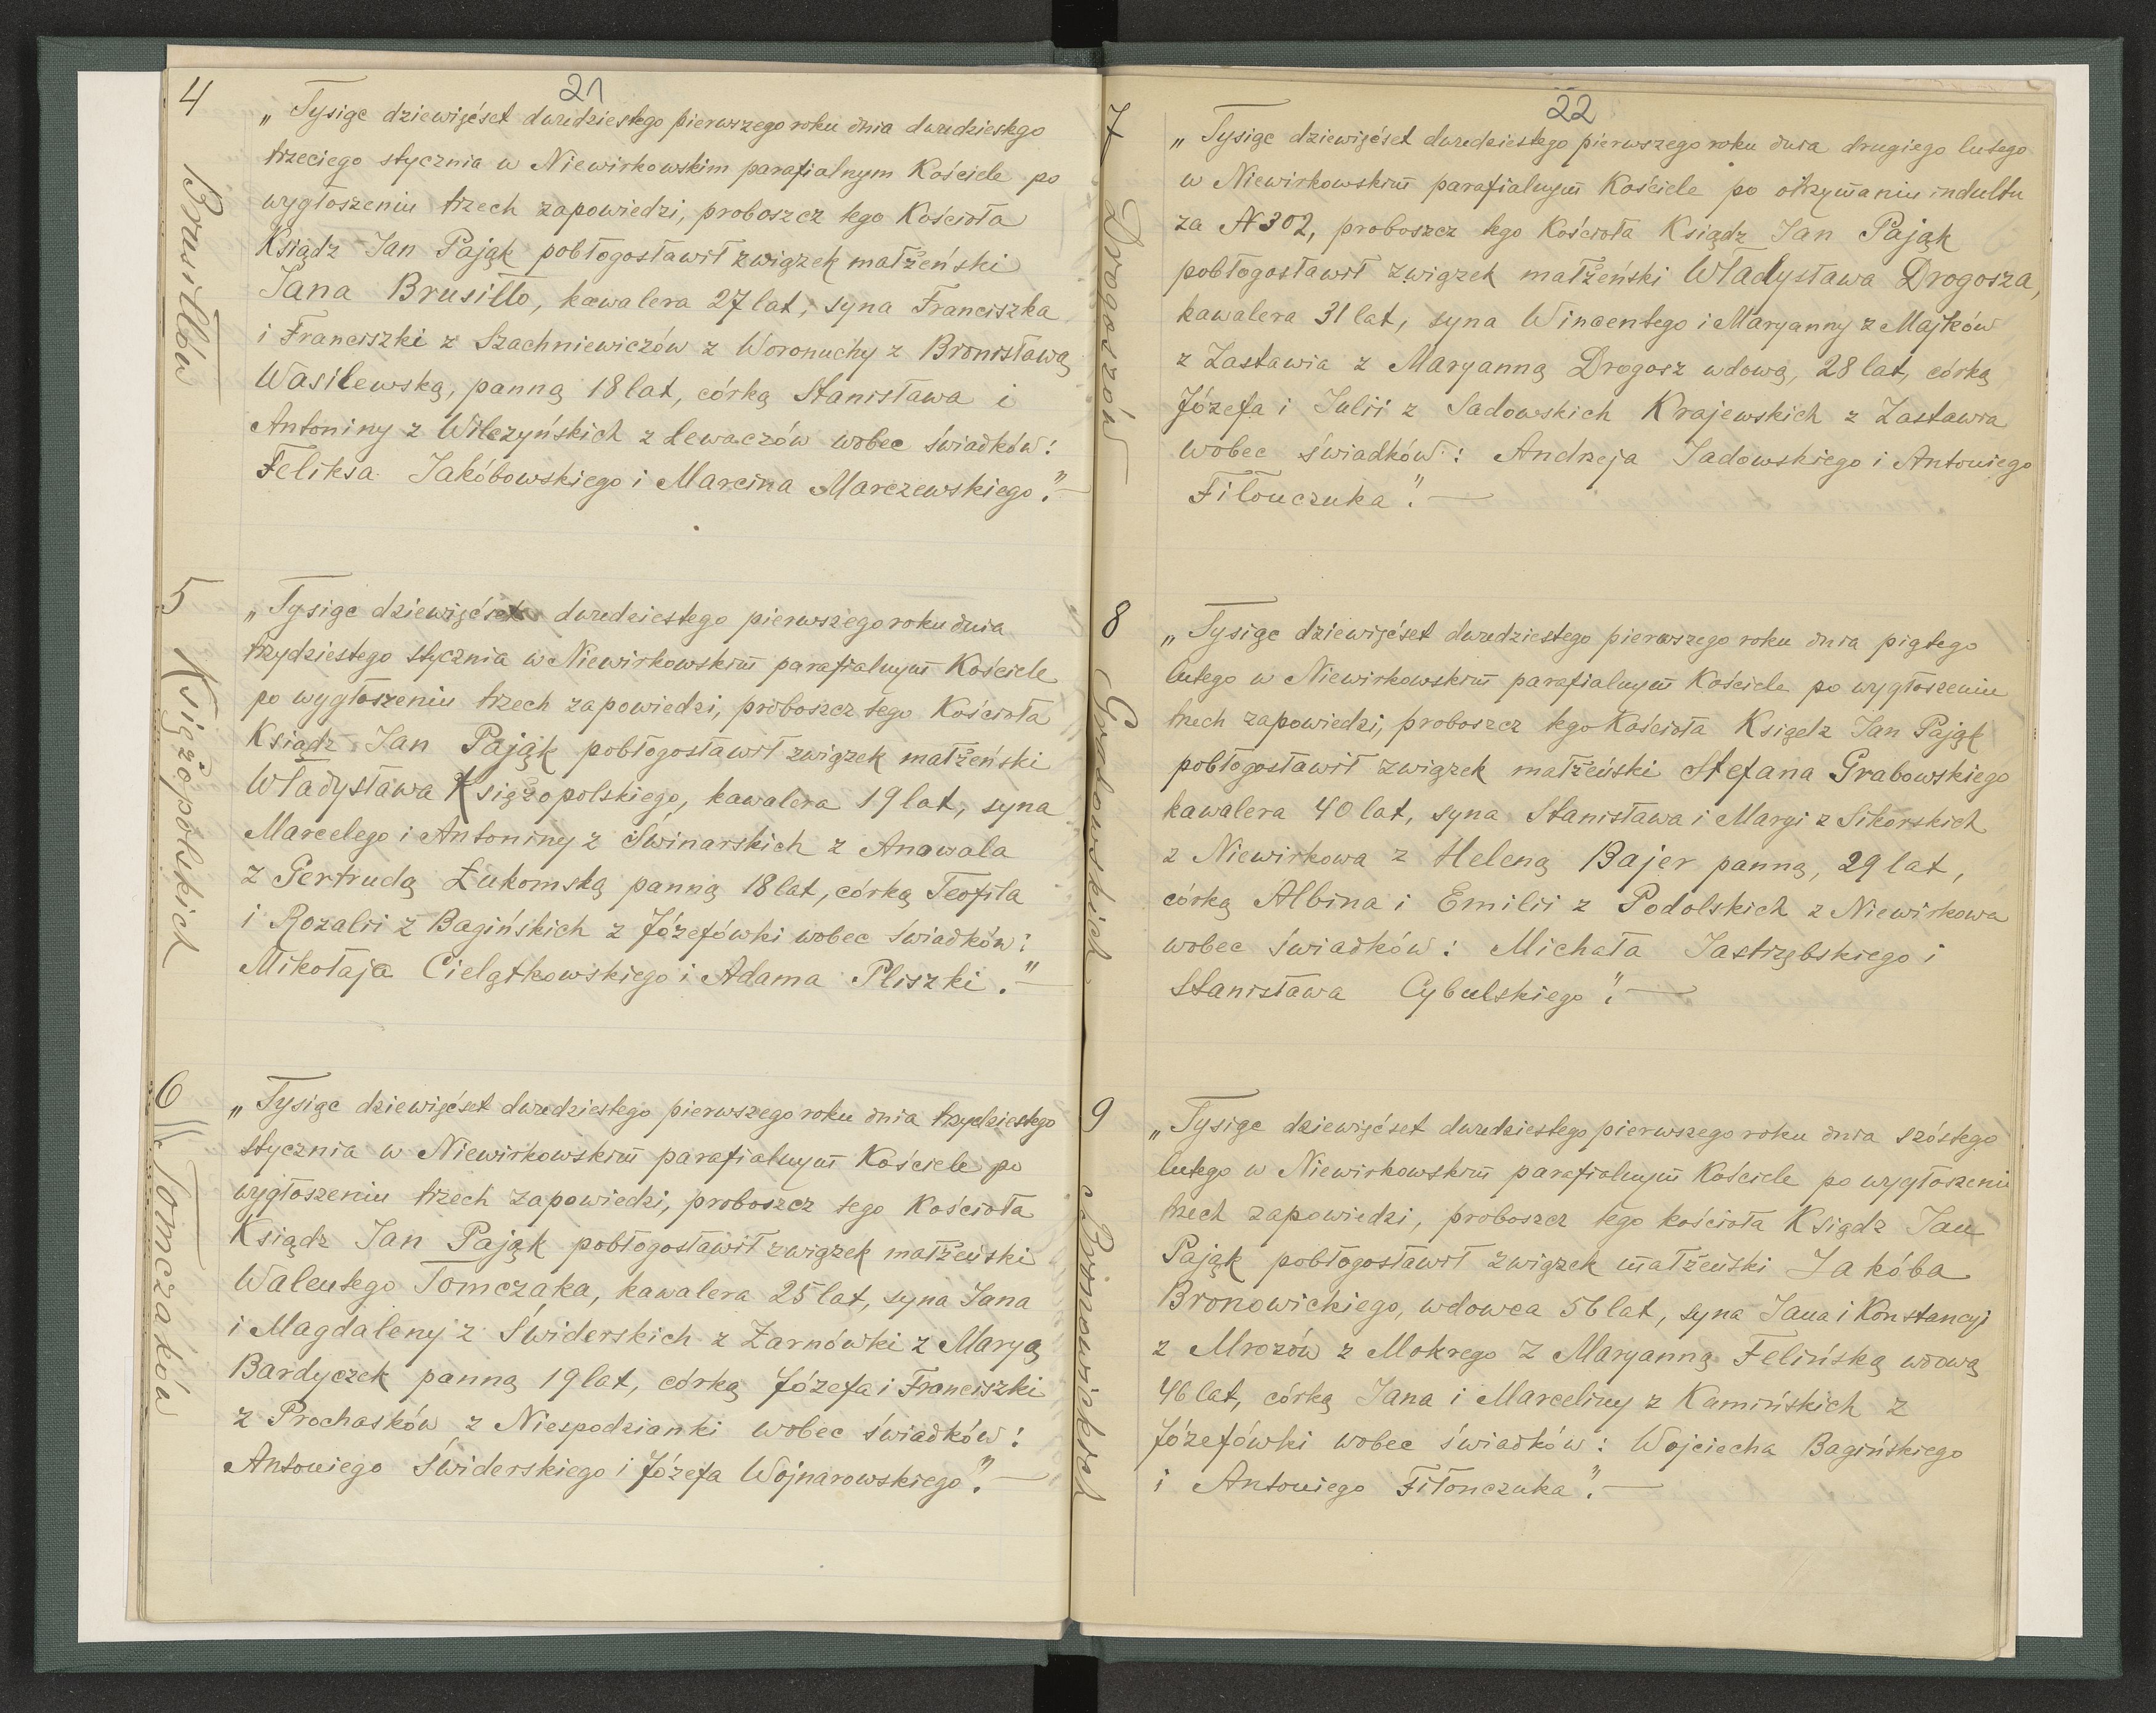 21
4
Brusiłłów
„Tysiąc dziewięćset dwudziestego pierwszego roku dnia dwudziestego
trzeciego stycznia w Niewirkowskim parafialnym Kościele po
wygłoszeniu trzech zapowiedzi, proboszcz tego Kościoła
Ksiądz Jan Pająk pobłogosławił związek małżeński
Jana Brusiłło, kawalera 27 lat, syna Franciszka
i Franciszki z Szachniewiczów z Woronuchy z Bronisławą
Wasilewską, panną 18 lat, córką Stanisława i
Antoniny z Wilczyńskich z Lewaczów wobec świadków:
Feliksa Jakóbowskiego i Marcina Marczewskiego".—
5
Księżopolskich
„Tysiąc dziewięćset dwudziestego pierwszego roku dnia
trzydziestego stycznia w Niewirkowskim̄ parafialnym̄ Kościele
po wygłoszeniu trzech zapowiedzi, proboszcz tego Kościoła
Ksiądz Jan Pająk pobłogosławił związek małżeński
Władysława Księżopolskiego, kawalera 19 lat, syna
Marcelego i Antoniny z Świnarskich z Anowala
z Gertrudą Łukomską panną 18 lat, córką Teofila
i Rozalii z Bagińskich z Józefówki wobec świadków:
Mikołaja Cielątkowskiego i Adama Pliszki."—
6
Tomczaków
„Tysiąc dziewięćset dwudziestego pierwszego roku dnia trzydziestego
stycznia w Niewirkowskim̄ parafialnym̄ Kościele po
wygłoszeniu trzech zapowiedzi, proboszcz tego Kościoła
Ksiądz Jan Pająk pobłogosławił związek małżeński
Walentego Tomczaka, kawalera 25 lat, syna Jana
i Magdaleny z Świderskich z Żarnówki z Maryą
Bardyczek panną 19 lat, córką Józefa i Franciszki
z Prochasków z Niespodzianki wobec świadków:
Antoniego Świderskiego i Józefa Wojnarowskiego".—
22
7
Drogoszów
„Tysiąc dziewięćset dwudziestego pierwszego roku dnia drugiego lutego
w Niewirkowskim̄ parafialnym̄ Kościele po otrzym̄aniu indultu
za N 302, proboszcz tego Kościoła Ksiądz Jan Pająk
pobłogosławił związek małżeński Władysława Drogosza,
kawalera 31 lat, syna Wincentego i Maryanny z Majków
z Zastawia z Maryanną Drogosz wdową, 28 lat, córką
Józefa i Julii z Sadowskich Krajewskich z Zastawia
wobec świadków: Andrzeja Sadowskiego i Antoniego
Fiłonczuka".—
8
Grabowskich
„Tysiąc dziewięćset dwudziestego pierwszego roku dnia piątego
lutego w Niewirkowskim̄ parafialnym̄ Kościele po wygłoszeniu
trzech zapowiedzi, proboszcz tego Kościoła Ksiądz Jan Pająk
pobłogosławił związek małżeński Stefana Grabowskiego
kawalera 40 lat, syna Stanisława i Maryi z Sikorskich
z Niewirkowa z Heleną Bajer panną, 29 lat,
córką Albina i Emilii z Podolskich z Niewirkowa
wobec świadków: Michała Jastrzębskiego i
Stanisława Cybulskiego".—
9
Bronowickich
„Tysiąc dziewięćset dwudziestego pierwszego roku dnia szóstego
lutego w Niewirkowskim̄ parafialnym̄ Kościele po wygłoszeniu
trzech zapowiedzi, proboszcz tego kościoła Ksiądz Jan
Pająk pobłogosławił związek małżeński Jakóba
Bronowickiego, wdowca 56 lat, syna Jana i Konstancyi
z Mrozów z Mokrego z Maryanną Felińską wdową
46 lat, córką Jana i Marceliny z Kamińskich z
Józefówki wobec świadków: Wojciecha Bagińskiego
i Antoniego Fiłonczuka".—